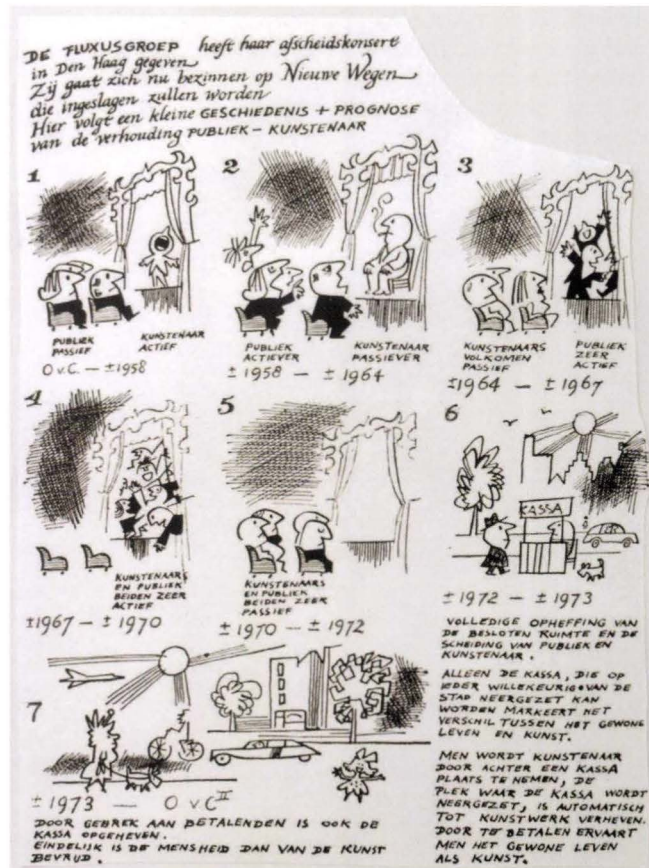 DE FLUXUSGROEP heeft haar afscheidskonsert
in Den Haag gegeven
Zij gaat zich nu bezinnen op Nieuwe Wegen
die ingeslagen zullen worden
Hier volgt een kleine GESCHIEDENIS + PROGNOSE
van de verhouding PUBLIEK - KUNSTENAAR
1
PUBLIEK
PASSIEF
KUNSTENAAR
ACTIEF
O v.C. — ±1958
2
PUBLIEK
ACTIEVER
KUNSTENAAR
PASSIEVER
± 1958 — ± 1964
3
KUNSTENAARS
VOLKOMEN
PASSIEF
PUBLIEK
ZEER
ACTIEF
±1964 — ± 1967
4
KUNSTENAARS
EN PUBLIEK
BEIDEN ZEER
ACTIEF
±1967 — ± 1970
5
KUNSTENAARS
EN PUBLIEK
BEIDEN ZEER
PASSIEF
± 1970 — ± 1972
6
KASSA
± 1972 — ± 1973
VOLLEDIGE OPHEFFING VAN
DE BESLOTEN RUIMTE EN DE
SCHEIDING VAN PUBLIEK EN
KUNSTENAAR.
ALLEEN DE KASSA, DIE OP
IEDER WILLEKEURIG VAN DE
STAD NEERGEZET KAN
WORDEN MARKEERT HET
VERSCHIL TUSSEN HET GEWONE
LEVEN EN KUNST.
MEN WORDT KUNSTENAAR
DOOR ACHTER EEN KASSA
PLAATS TE NEMEN, DE
PLEK WAAR DE KASSA WORDT
NEERGEZET, IS AUTOMATISCH
TOT KUNSTWERK VERHEVEN.
DOOR TE BETALEN ERVAART
MEN HET GEWONE LEVEN
ALS KUNST.
7
± 1973 — O v C II
DOOR GEBREK AAN BETALENDEN IS OOK DE
KASSA OPGEHEVEN.
EINDELIJK IS DE MENSHEID DAN VAN DE KUNST
BEVRIJD.